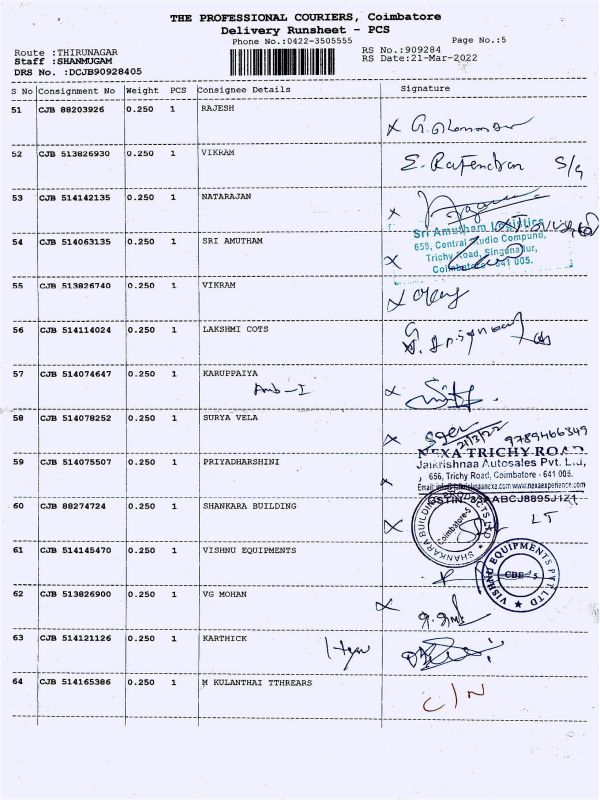 THE PROFESSIONAL COURIERS, Coimbatore
Delivery Runsheet - PCS
Phone No.:0422-3505555
Page No.:5
Route :THIRUNAGAR
RS No.:909284
Staff :SHANMUGAM
RS Date:21-Mar-2022
DRS No. :DCJB90928405
S No Consignment No Weight PCS Consignee Details Signature
51 CJB 88203926 0.250 1 RAJESH
52 CJB 513826930 0.250 1 VIKRAM E. Rajendran
53 CJB 514142135 0.250 1 NATARAJAN
Sri Amutham Logistics
54 CJB 514063135 0.250 1 SRI AMUTHAM
658, Central Studio Compund,
Trichy Road, Singanallur,
Coimbatore - 641 005.
55 CJB 513826740 0.250 1 VIKRAM
56 CJB 514114024 0.250 1 LAKSHMI COTS
57 CJB 514074647 0.250 1 KARUPPAIYA
58 CJB 514078252 0.250 1 SURYA VELA
21/3/22 9789466349
NEXA TRICHY ROAD
59 CJB 514075507 0.250 1 PRIYADHARSHINI
Jaikrishnaa Autosales Pvt. Ltd,
656, Trichy Road, Coimbatore - 641 005.
www.nexaexperience.com
60 CJB 88274724 0.250 1 SHANKARA BUILDING
SHANKARA BUILDING PRODUCTS LTD
Coimbatore-5
LT
61 CJB 514145470 0.250 1 VISHNU EQUIPMENTS
VISHNU EQUIPMENTS PVT LTD
CBE-5
62 CJB 513826900 0.250 1 VG MOHAN
63 CJB 514121126 0.250 1 KARTHICK
64 CJB 514165386 0.250 1 M KULANTHAI TTHREARS
C/N